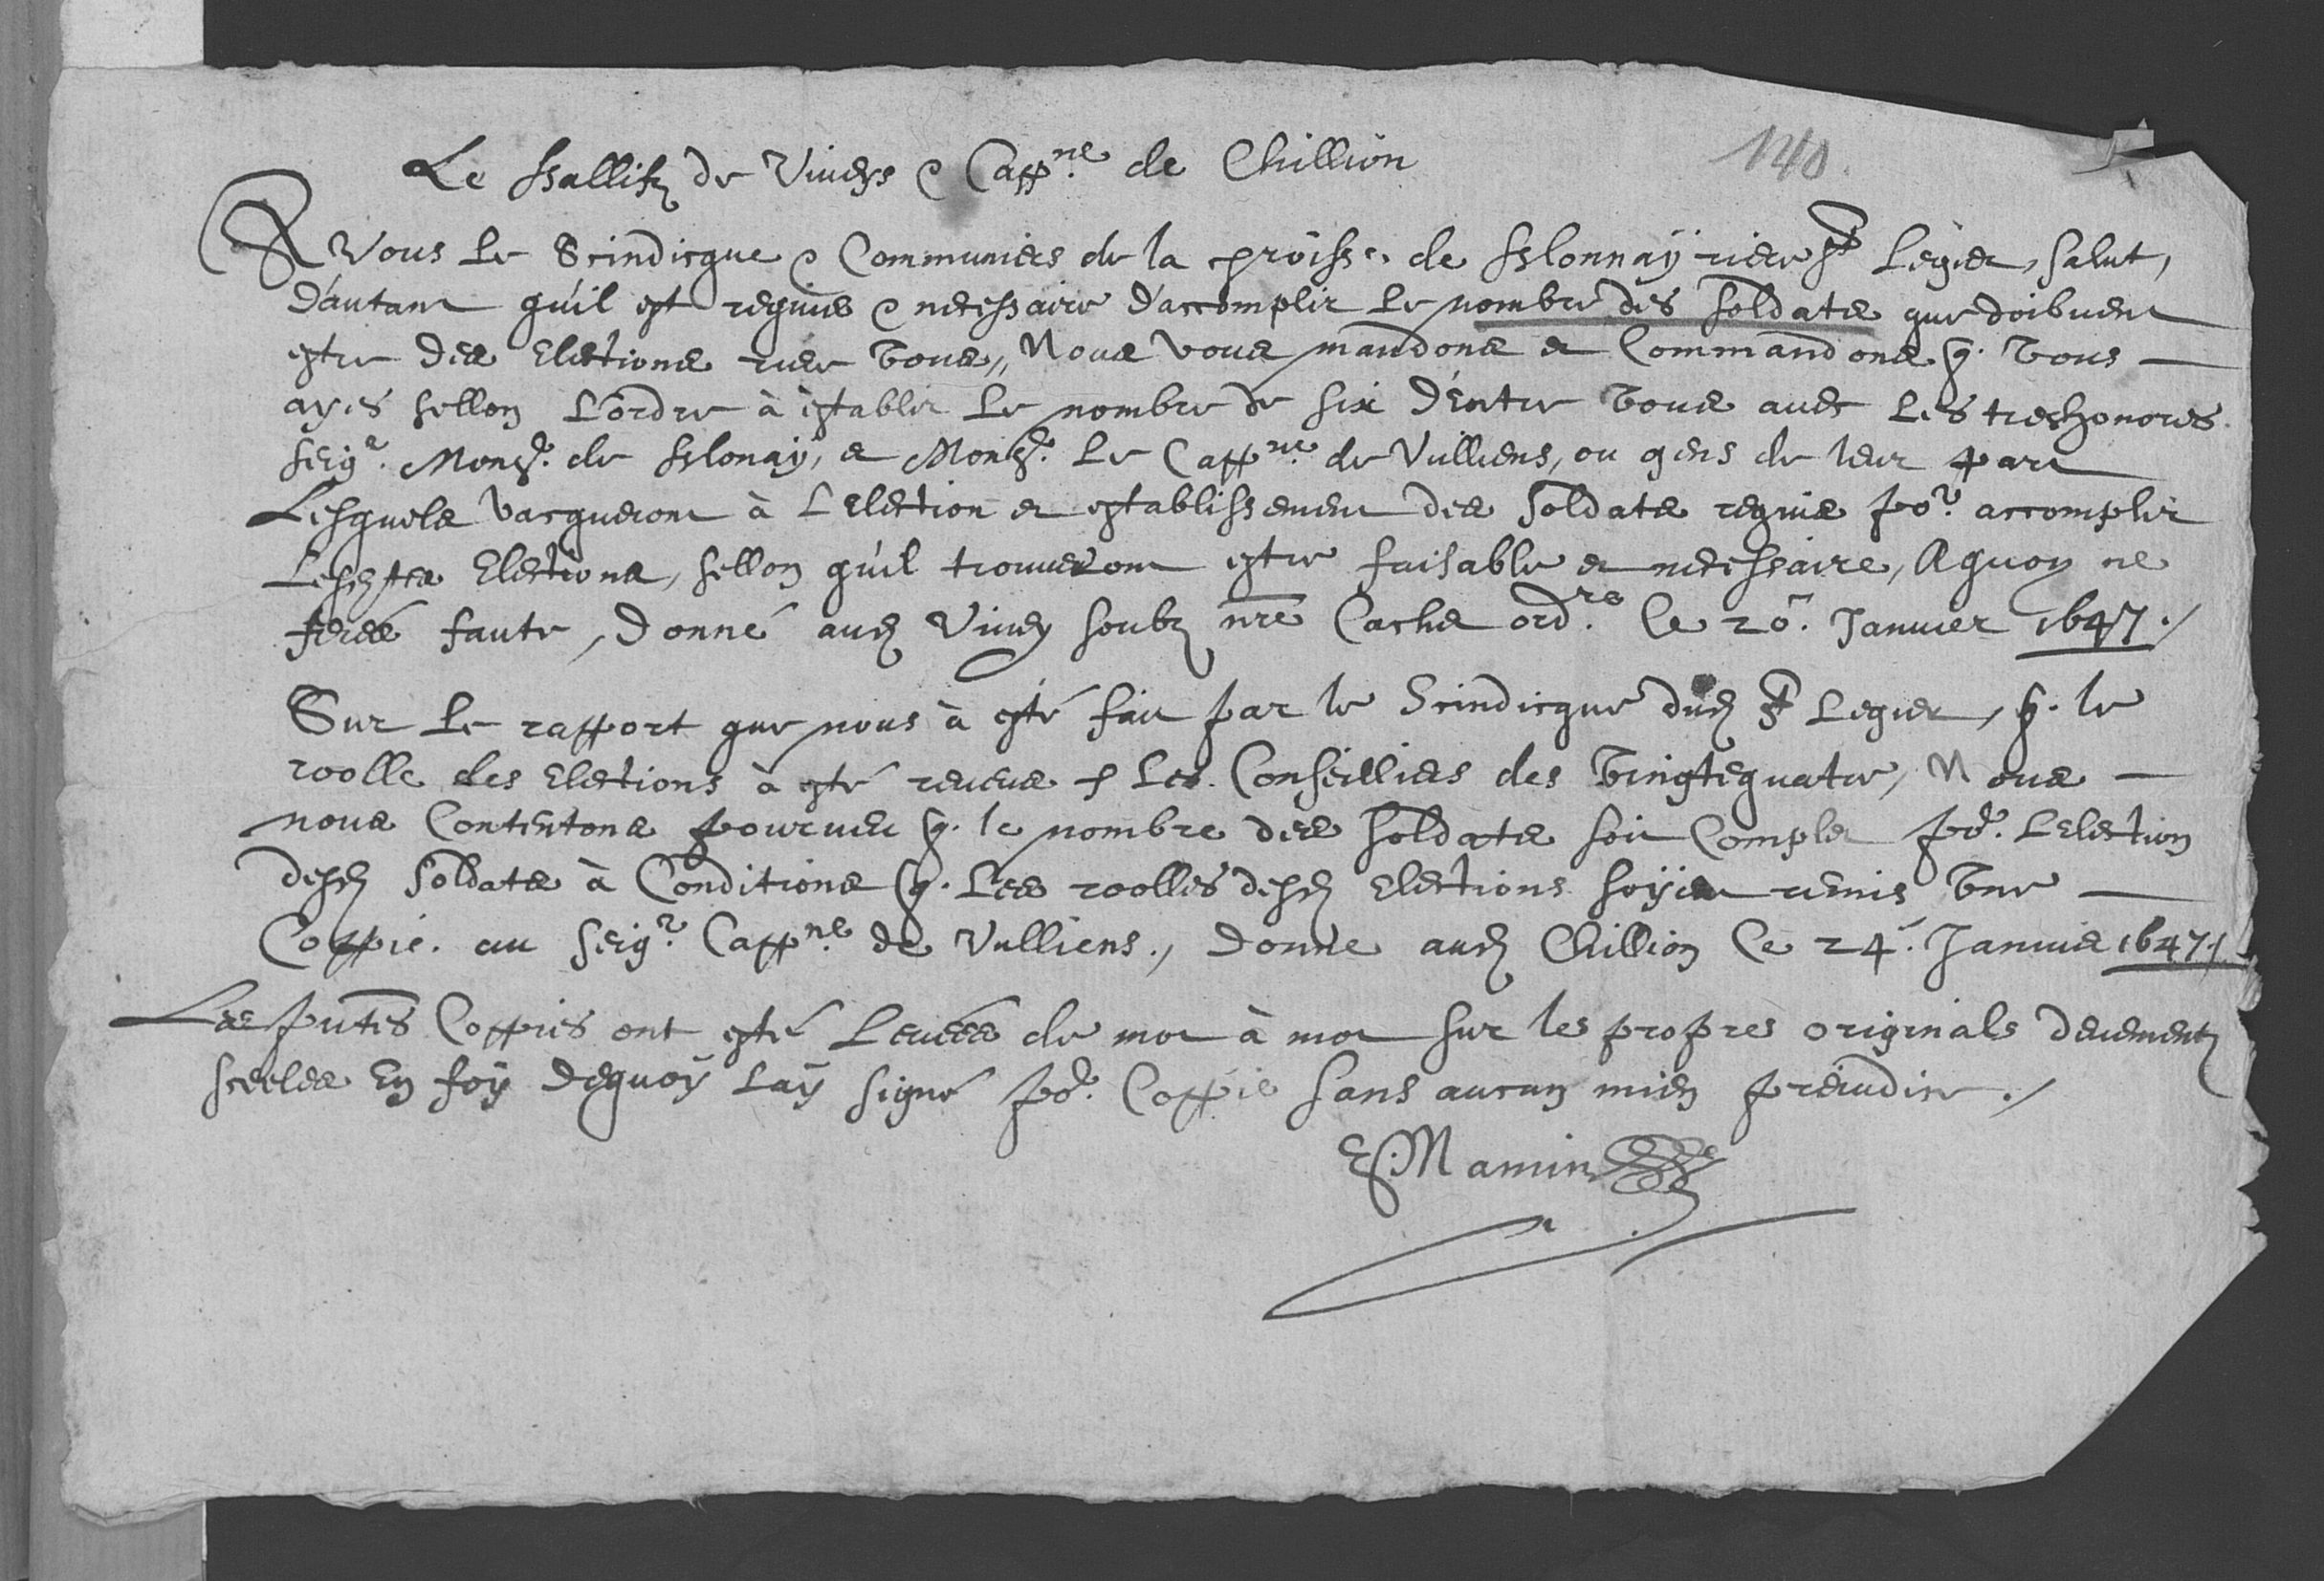 140.
Le Ballifz de Viveys & Capp.ne de Chillion
A Vous Le Scindicque & Communiers de la proisse. de Blonnaÿ riere St Legier, Salut,
d'autant qu'il est requis & necessaire d'accomplir Le nombre des soldats que doibvent
estre des Elections riere Vous, Nous vous mandons et Commandons q. Vous
ayes sellon L'ordre à establir Le nombre de six D'entre Vous avec Les treshonores
seigr. Monsr. de Blonaÿ, et Monsr. Le Capp.ne de Vulliens, ou gens de leur part
Lesquels vacqueront à L'Election et establissement des soldats requis por. accomplir
Lesdtes Elections, sellon qu'il trouveront estre faisable et necessaire, A quoy ne
ferés faute, Donné audz Vivey soubz nre Cachet ord.re Ce 20. Janvier 1647./
Sur Le rapport que nous à esté fait par le Scindicque dudz St Legier, q. le
roolle des Elections à esté reveus p Les Conseilliers des Vingtequatre, Nous
nous Contentons pourveu q. le nombre des soldats soit Complet por. L'election
desdz Soldats à Conditions q. Les roolles desdz Elections soÿent remis Une
Coppie. au seigr. Capp.ne de Vulliens., Donne audz Chillion Ce 24. Janvier 1647./
Les pntes Coppies ont esté Levées de mot à mot sur les propres originals deuementz
sceelés En foÿ dequoÿ Laÿ signé por. Coppie sans aucun mien prejudice./
E. Mamin